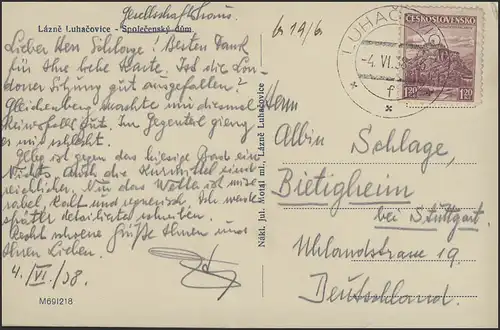 Gesellschaftshaus.
Lázně Luhačovice - Společenský dům
Lieber Herr Schlage! Besten Dank
für Ihre liebe Karte. Ist die Lon-
doner Sitzung gut ausgefallen?
Gleichenberg machte mir diesmal
keineswegs gut. Im Gegenteil gieng
es mir schlecht.
ist gegen das hiesige Grad ein
Nichts. Auch die Kurmittel sind
reichlicher. Nur das Wetter ist mise-
rabel, kalt und regnerisch. Ich werde
später detaillierter schreiben.
Recht schöne Grüße Ihnen und
Ihren Lieben.
4./VI./38.
M691218
Nákl. Jul. Motal ml., Lázně Luhačovice
6 19/6
LUHAČOVICE
-4.VI.38
f
ČESKOSLOVENSKO
1.20 1.20
Herrn
Albin Schlage,
Bietigheim
bei Stuttgart.
Uhlandstrasse 19
Deutschland.